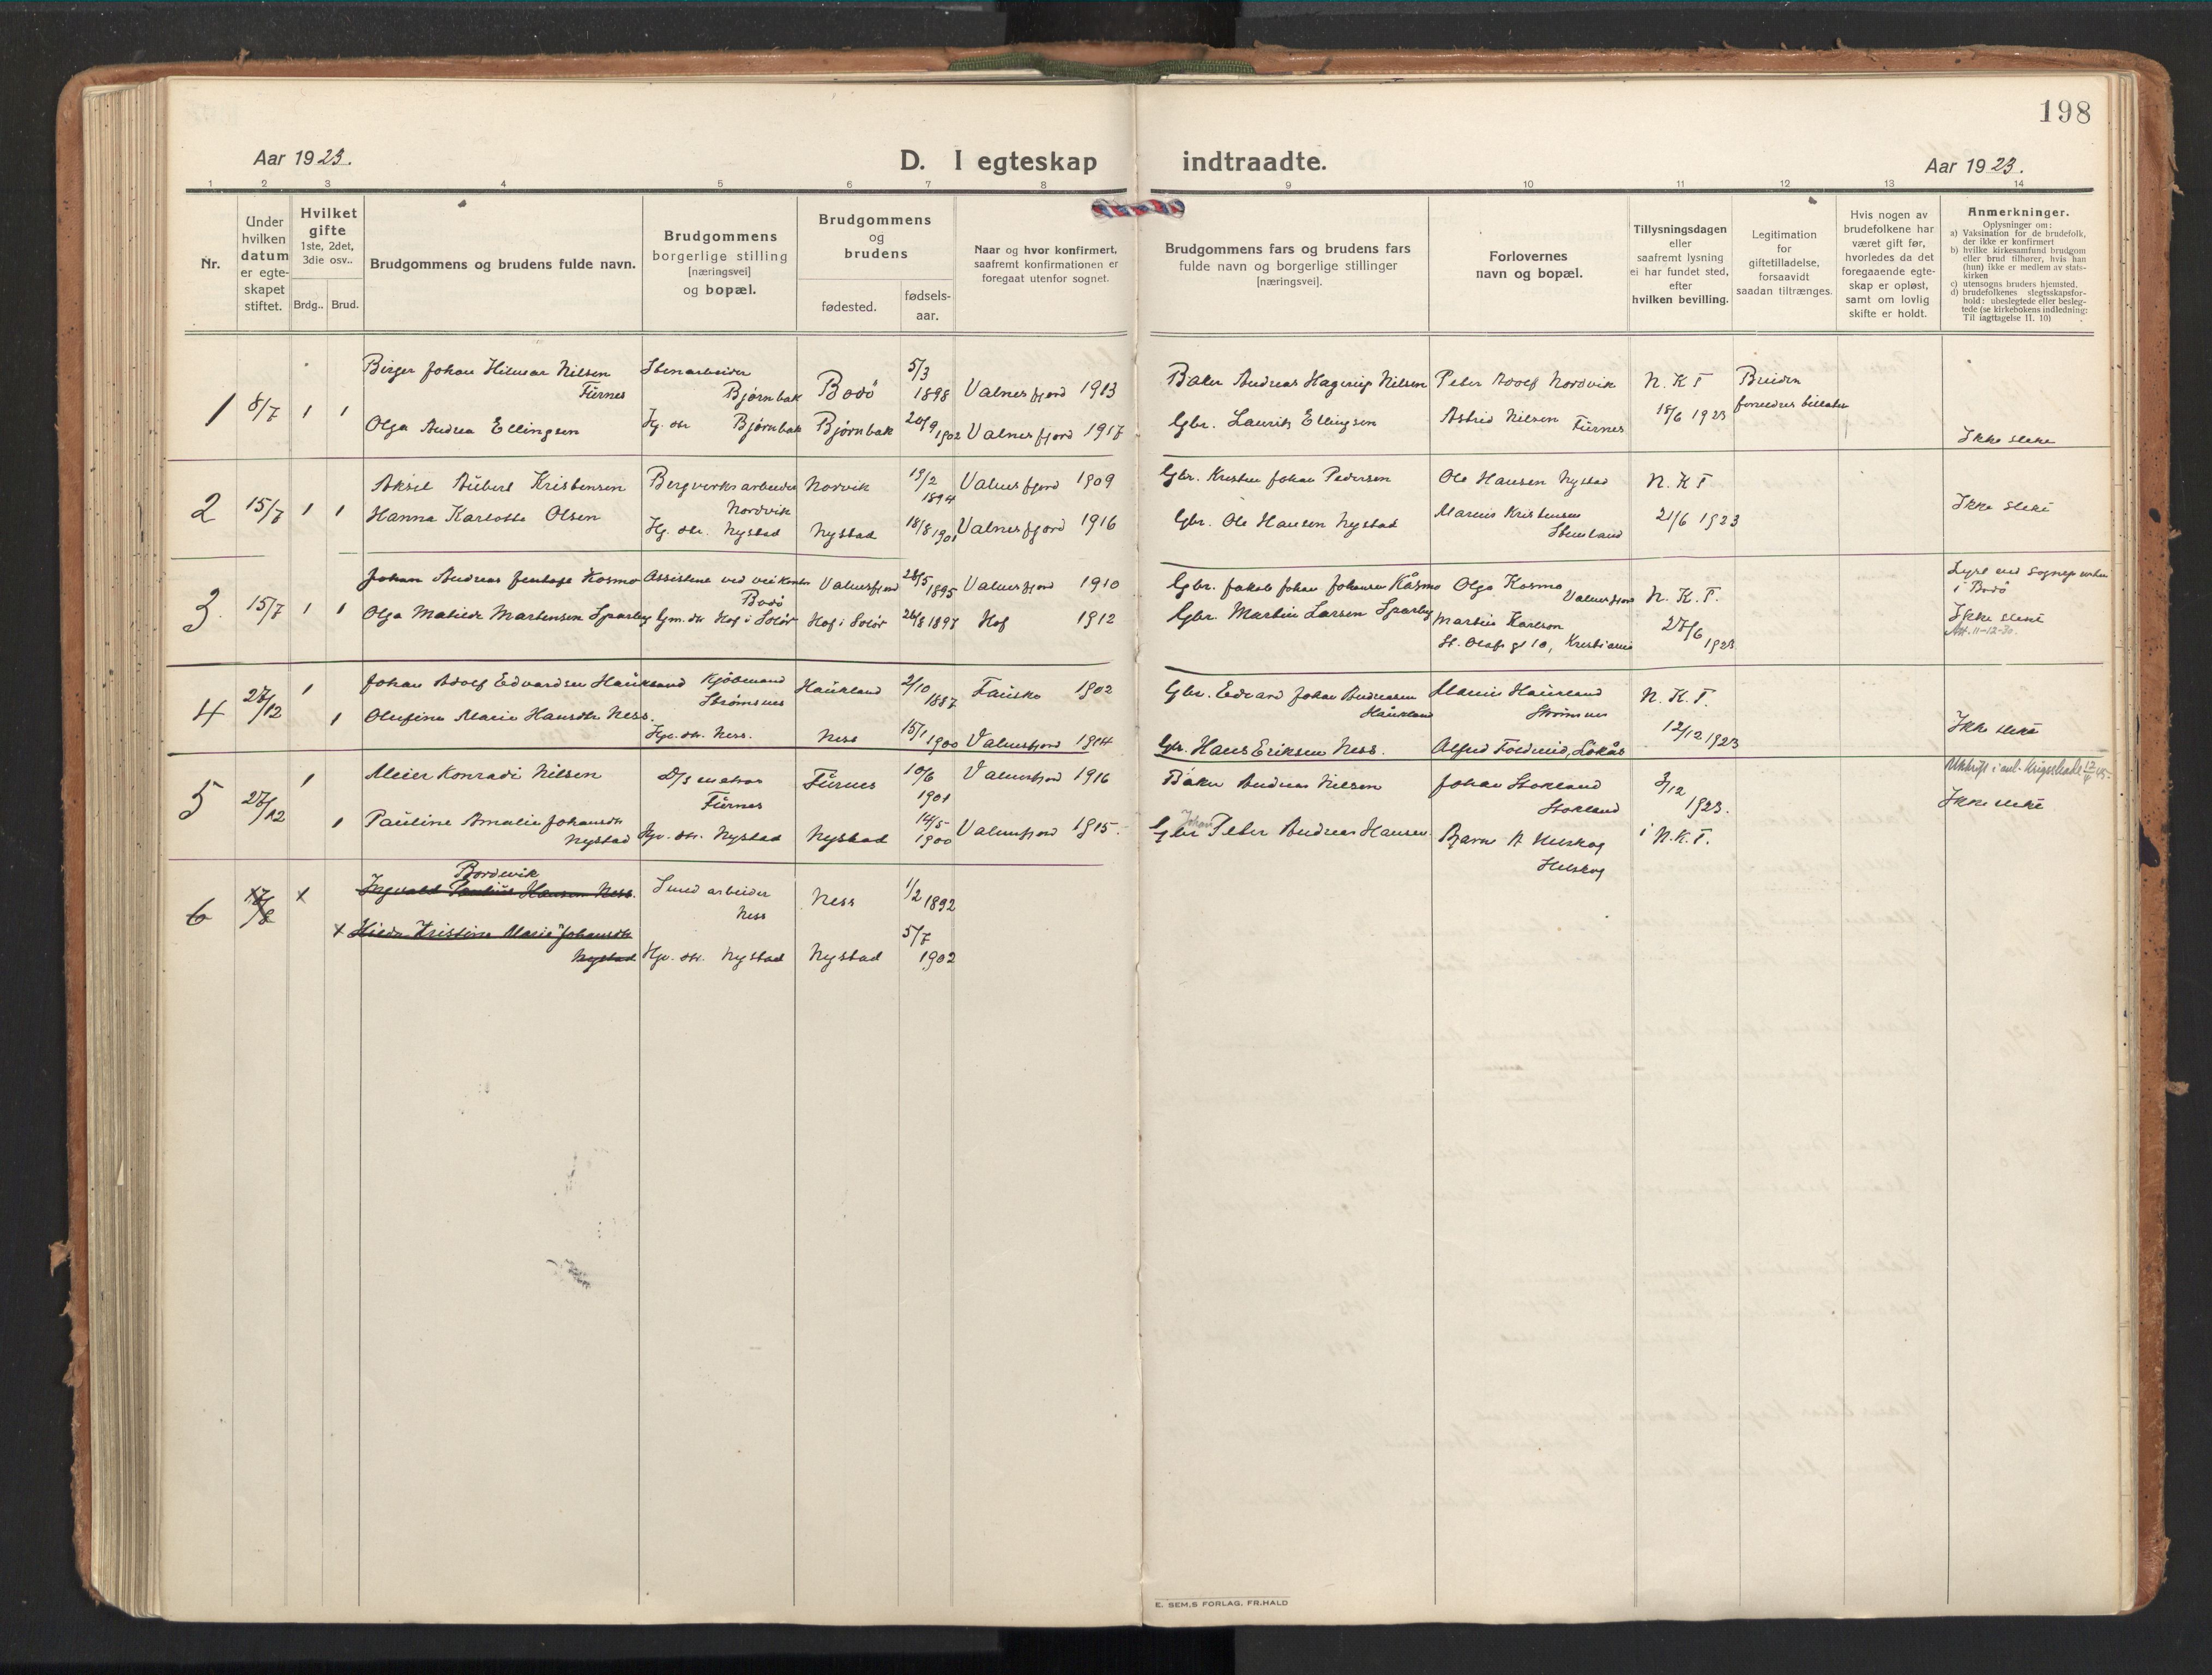 198
Aar 1923.
D. I egteskap indtraadte.
Aar 1923.
1 2 3 4 5 6 7 8 9 10 11 12 13 14
Nr.
Under
hvilken
datum
er egte-
skapet
stiftet.
Hvilket
gifte
1ste, 2det,
3die osv..
Brdg.. Brud.
Brudgommens og brudens fulde navn.
Brudgommens
borgerlige stilling
[næringsvei]
og bopæl.
Brudgommens
og
brudens
fødested.
fødsels-
aar.
Naar og hvor konfirmert,
saafremt konfirmationen er
foregaat utenfor sognet.
Brudgommens fars og brudens fars
fulde navn og borgerlige stillinger
[næringsvei].
Forlovernes
navn og bopæl.
Tillysningsdagen
eller
saafremt lysning
ei har fundet sted,
efter
hvilken bevilling.
Legitimation
for
giftetilladelse,
forsaavidt
saadan tiltrænges.
Hvis nogen av
brudefolkene har
været gift før,
hvorledes da det
foregaaende egte-
skap er opløst,
samt om lovlig
skifte er holdt.
Anmerkninger.
Oplysninger om:
a) Vaksination for de brudefolk,
der ikke er konfirmert
b) hvilke kirkesamfund brudgom
eller brud tilhører, hvis han
(hun) ikke er medlem av stats-
kirken
c) utensogns bruders hjemsted.
d) brudefolkenes slegtsskapsfor-
hold: ubeslegtede eller besleg-
tede (se kirkebokens indledning:
Til iagttagelse II. 10)
1 8/7 1 1
Birger Johan Hilmar Nilsen
Furnes
Stenarbeider
Bjørnbak
Bodö
5/3
1898
Valnesfjord 1913
Baker Andreas Hagerup Nilsen
Peter Adolf Nordvik
N. K T
Bruden
forældres tilladelse
Olga Andrea Ellingsen
Hg. dtr Bjørnbak
Bjørnbak
20/9 1902
Valnesfjord 1917
Gbr. Laurits Ellingsen
Astrid Nilsen Furnes
18/6 1923
Ikke slekt
2 15/7 1 1
Aksel Albert Kristensen
Bergverksarbeider
Nordvik
Norvik
19/2
1894
Valnesfjord 1909
Gbr. Kristen Johan Pedersen
Ole Hansen Nystad
N. K T
Hanna Karlotte Olsen
Hg. dtr. Nystad
Nystad
18/8 1901
Valnesfjord 1916
Gbr. Ole Hansen Nystad
Marius Kristensen
Stemland
21/6 1923
Ikke slekt
3. 15/7 1 1
Johan Andreas Jentoft Kosmo
Assistent ved veikontor
Bodö
Valnesfjord
28/5 1895
Valnesfjord 1910
Gbr. Jakob Johan Johansen Kåsmo
Olga Kosmo
Valnesfjord
N. K. T.
Lyst ved Sognepresten
i Bodö
Olga Matilde Martensen Sparby
Gm. dtr Hof i Solør
Hof i Solør
24/8 1897
Hof 1912
Gbr. Martin Larsen Sparby
Martin Karlson
St. Olafs gt 10, Kristiania
27/6
1923
Ikke slekt
Att. 11-12-30.
4 27/12 1
Johan Adolf Edvardsen Haukland
Kjöbmand
Strømsnes
Haukland
2/10
1887
Fauske 1902
Gbr. Edvard Johan Andreasen
Haukland
Haukland
Strømsnes
N. K. T.
1
Olufine Marie Hansdtr Ness.
Hgv. dtr. Ness.
Ness
15/1 1900
Valnesfjord 1914
Gbr. Hans Eriksen Ness.
12/12 1923
Ikke slekt
5 27/12 1
Meier Konradi Nilsen
D/s matros
Furnes
Furnes
10/6
1901
Valnesfjord 1916
Baker Andreas Nilsen
Johan Stokland
Stokland
3/12
1923.
Ikke slekt
1
Pauline Amalie Johansdtr
Nystad
Hgv. dtr. Nystad
Nystad
14/5
1900
Valnesfjord 1915.
Johan
Gbr Peter Andreas Hansen
Helskog
i N. K. T.
6
x
Bordevik
Ingvald Paulius Hansen Ness.
Smed arbeider
Ness
Ness
1/2 1892
x Hilda Kristine Marie Johansdtr
Nystad
Hgv. dtr. Nystad
Nystad
5/7
1902
E. SEM.S FORLAG, FR.HALD